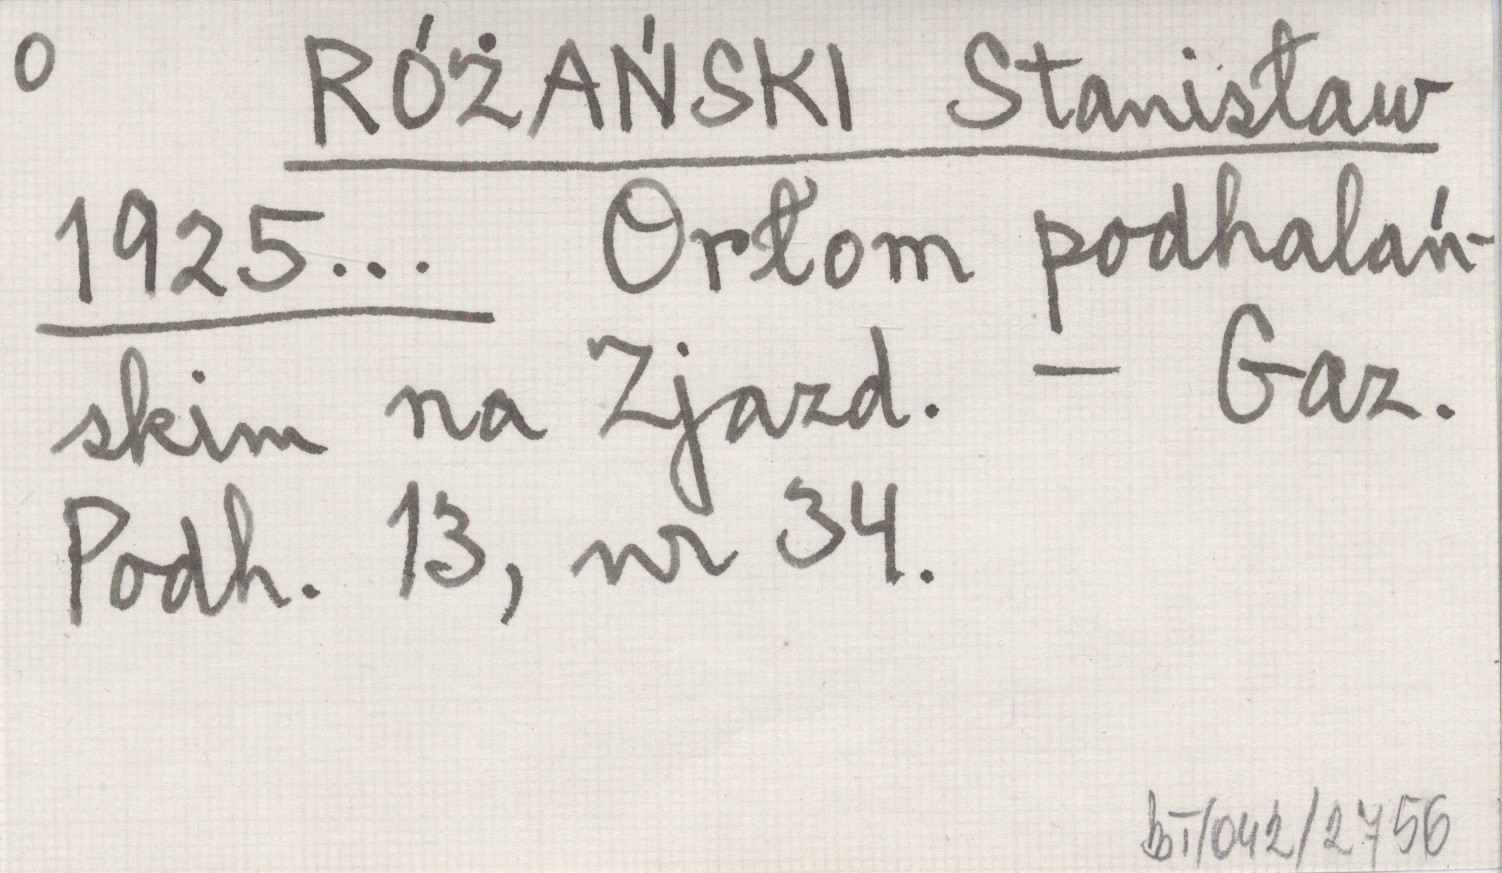 O RÓŻAŃSKI Stanisław
1925... Orłom podhalań-
skim na Zjazd. — Gaz.
Podh. 13, nr 34.
bT/042/2756